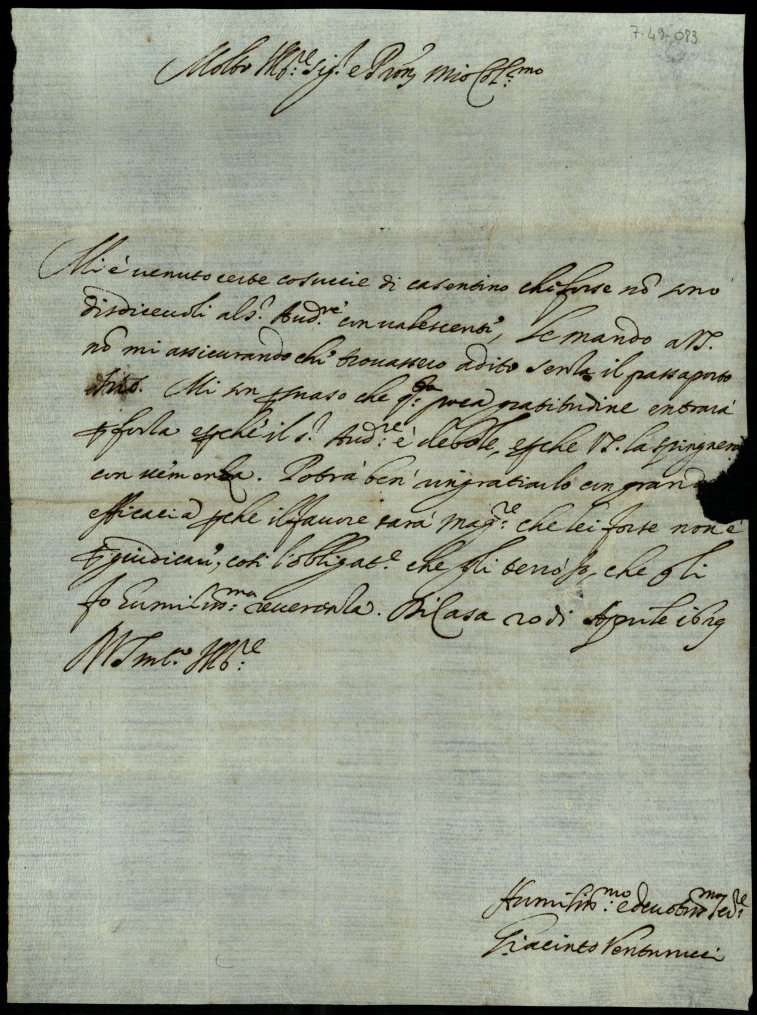 7-49-083
Molto Ill.re Sig.r e Pron mio Col.mo
Mi è venuto certe cosuccie di casentino che forse nõ sono
disdicevoli al s.r Aud.re convalescente, Le mando a VS.
nõ mi assicurando che trovassero adito senza il passaporto
suo. Mi son psuaso che q.sta poca gratitudine entrarà
p forza e pche il s.r Aud.re è debole, e pche VS. la spignerà
con vemenza. Potrà ben ringratiarlo con grand
efficacia pche il favore sarà mag.re che lei forse non è
p giudicar, così l'obbligat.e che gli terrò Io, che gli
fo humiliss.ma reverenza. Di Casa 20 di Aprile 1629
Di VS molto Ill.re
Humiliss.mo e devotiss.mo ser.re
Giacinto Venturucci